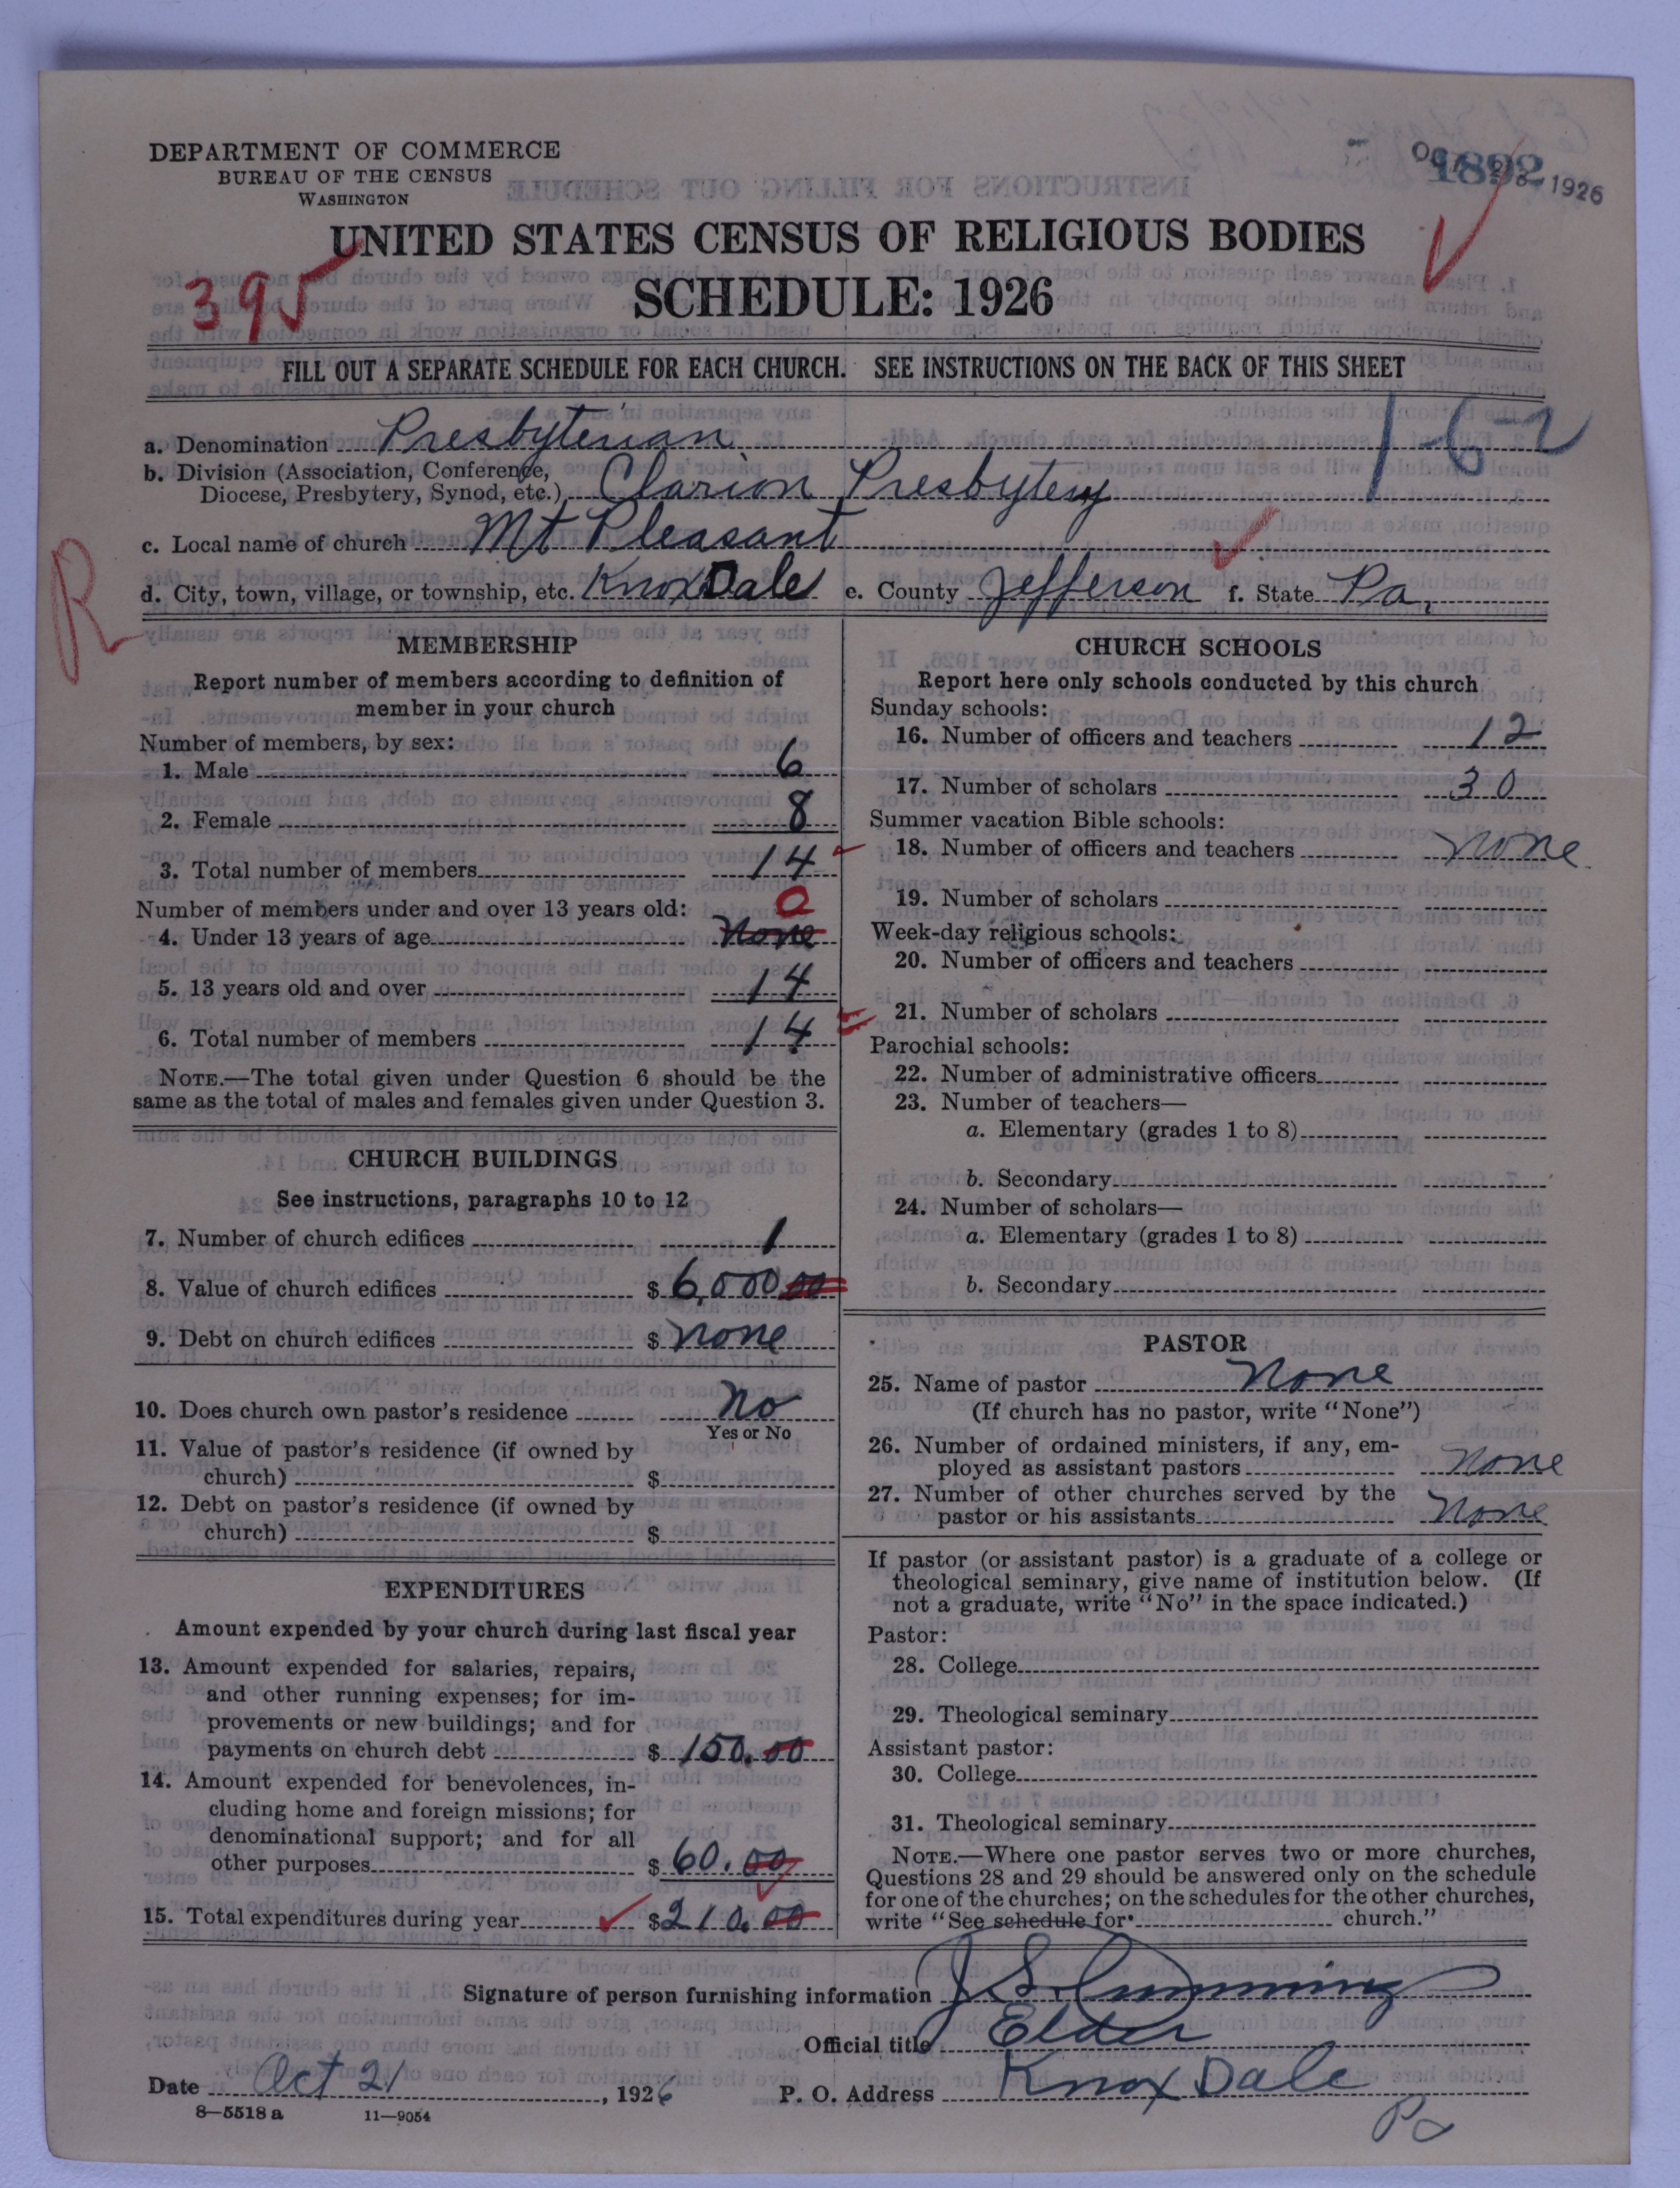 DEPARTMENT OF COMMERCE
BUREAU OF THE CENSUS
WASHINGTON
1892
1926
UNITED STATES CENSUS OF RELIGIOUS BODIES
395
SCHEDULE: 1926
FILL OUT A SEPARATE SCHEDULE FOR EACH CHURCH. SEE INSTRUCTIONS ON THE BACK OF THIS SHEET
1-62
a. Denomination Presbyterian
b. Division (Association, Conference,
Diocese, Presbytery, Synod, etc.) Clarion Presbytery
c. Local name of church Mt Pleasant
R
d. City, town, village, or township, etc. Knox Dale e. County Jefferson f. State Pa.
MEMBERSHIP
Report number of members according to definition of
member in your church
Number of members, by sex:
1. Male 6
2. Female 8
3. Total number of members 14
Number of members under and over 13 years old: 0
4. Under 13 years of age none
5. 13 years old and over 14
6. Total number of members 14
NOTE.—The total given under Question 6 should be the
same as the total of males and females given under Question 3.
CHURCH BUILDINGS
See instructions, paragraphs 10 to 12
7. Number of church edifices 1
8. Value of church edifices $ 6,000 00
9. Debt on church edifices $ none
10. Does church own pastor's residence No
Yes or No
11. Value of pastor's residence (if owned by
church) $
12. Debt on pastor's residence (if owned by
church) $
EXPENDITURES
Amount expended by your church during last fiscal year
13. Amount expended for salaries, repairs,
and other running expenses; for im-
provements or new buildings; and for
payments on church debt $ 150.00
14. Amount expended for benevolences, in-
cluding home and foreign missions; for
denominational support; and for all
other purposes $ 60.00
15. Total expenditures during year $ 210.00
CHURCH SCHOOLS
Report here only schools conducted by this church
Sunday schools:
16. Number of officers and teachers 12
17. Number of scholars 30
Summer vacation Bible schools:
18. Number of officers and teachers none
19. Number of scholars
Week-day religious schools:
20. Number of officers and teachers
21. Number of scholars
Parochial schools:
22. Number of administrative officers
23. Number of teachers—
a. Elementary (grades 1 to 8)
b. Secondary
24. Number of scholars—
a. Elementary (grades 1 to 8)
b. Secondary
PASTOR
25. Name of pastor None
(If church has no pastor, write "None")
26. Number of ordained ministers, if any, em-
ployed as assistant pastors none
27. Number of other churches served by the
pastor or his assistants none
If pastor (or assistant pastor) is a graduate of a college or
theological seminary, give name of institution below. (If
not a graduate, write "No" in the space indicated.)
Pastor:
28. College
29. Theological seminary
Assistant pastor:
30. College
31. Theological seminary
NOTE.—Where one pastor serves two or more churches,
Questions 28 and 29 should be answered only on the schedule
for one of the churches; on the schedules for the other churches,
write "See schedule for church."
Signature of person furnishing information J S Cumming
Official title Elder
Date Oct 21, 1926 P. O. Address Knox Dale
Pa
8—5518 a 11—9054